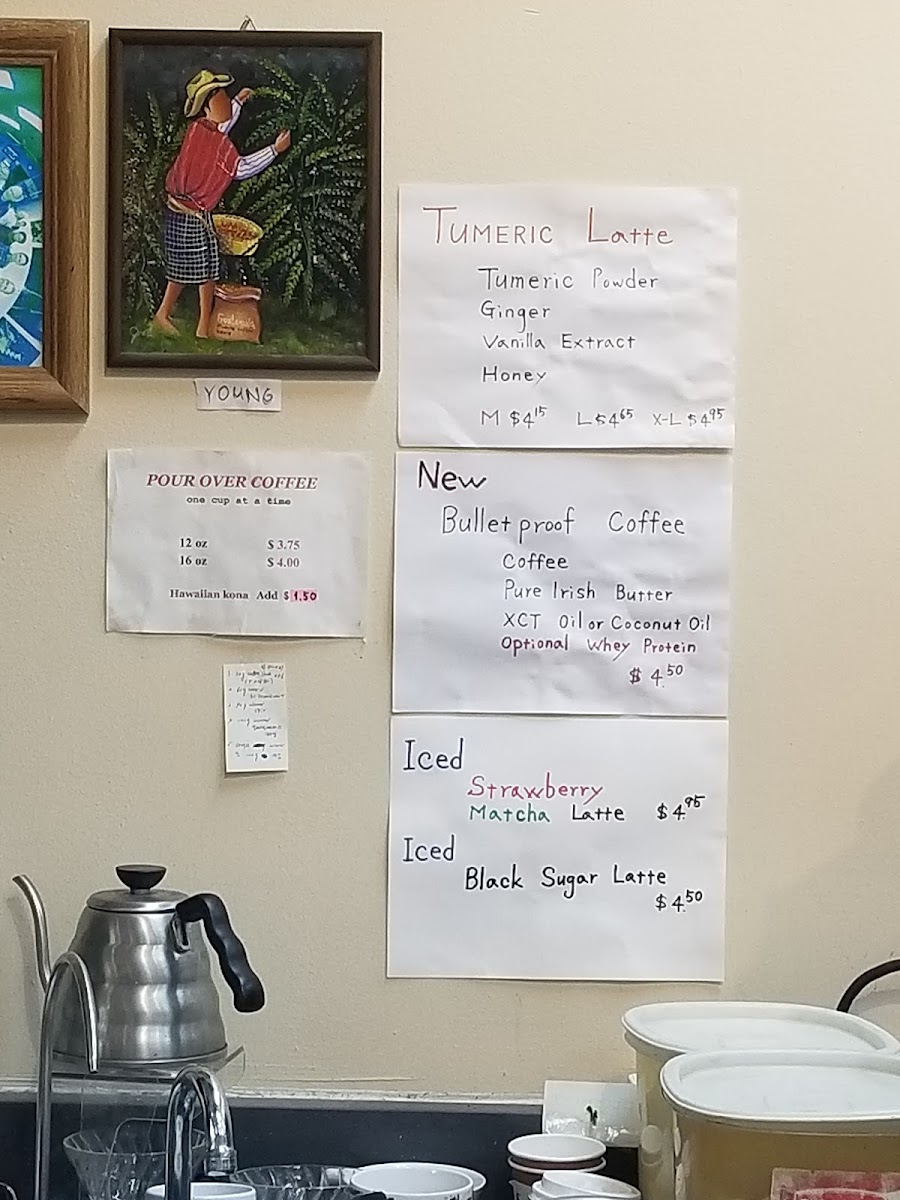 Guatemala
YOUNG
POUR OVER COFFEE
one cup at a time
12 oz $ 3.75
16 oz $ 4.00
Hawaiian kona Add $ 1.50
TUMERIC Latte
Tumeric Powder
Ginger
Vanilla Extract
Honey
M $4.15 L $4.65 X-L $4.95
New
Bulletproof Coffee
Coffee
Pure Irish Butter
XCT Oil or Coconut Oil
Optional Whey Protein
$ 4.50
Iced
Strawberry
Matcha Latte $4.95
Iced
Black Sugar Latte
$4.50